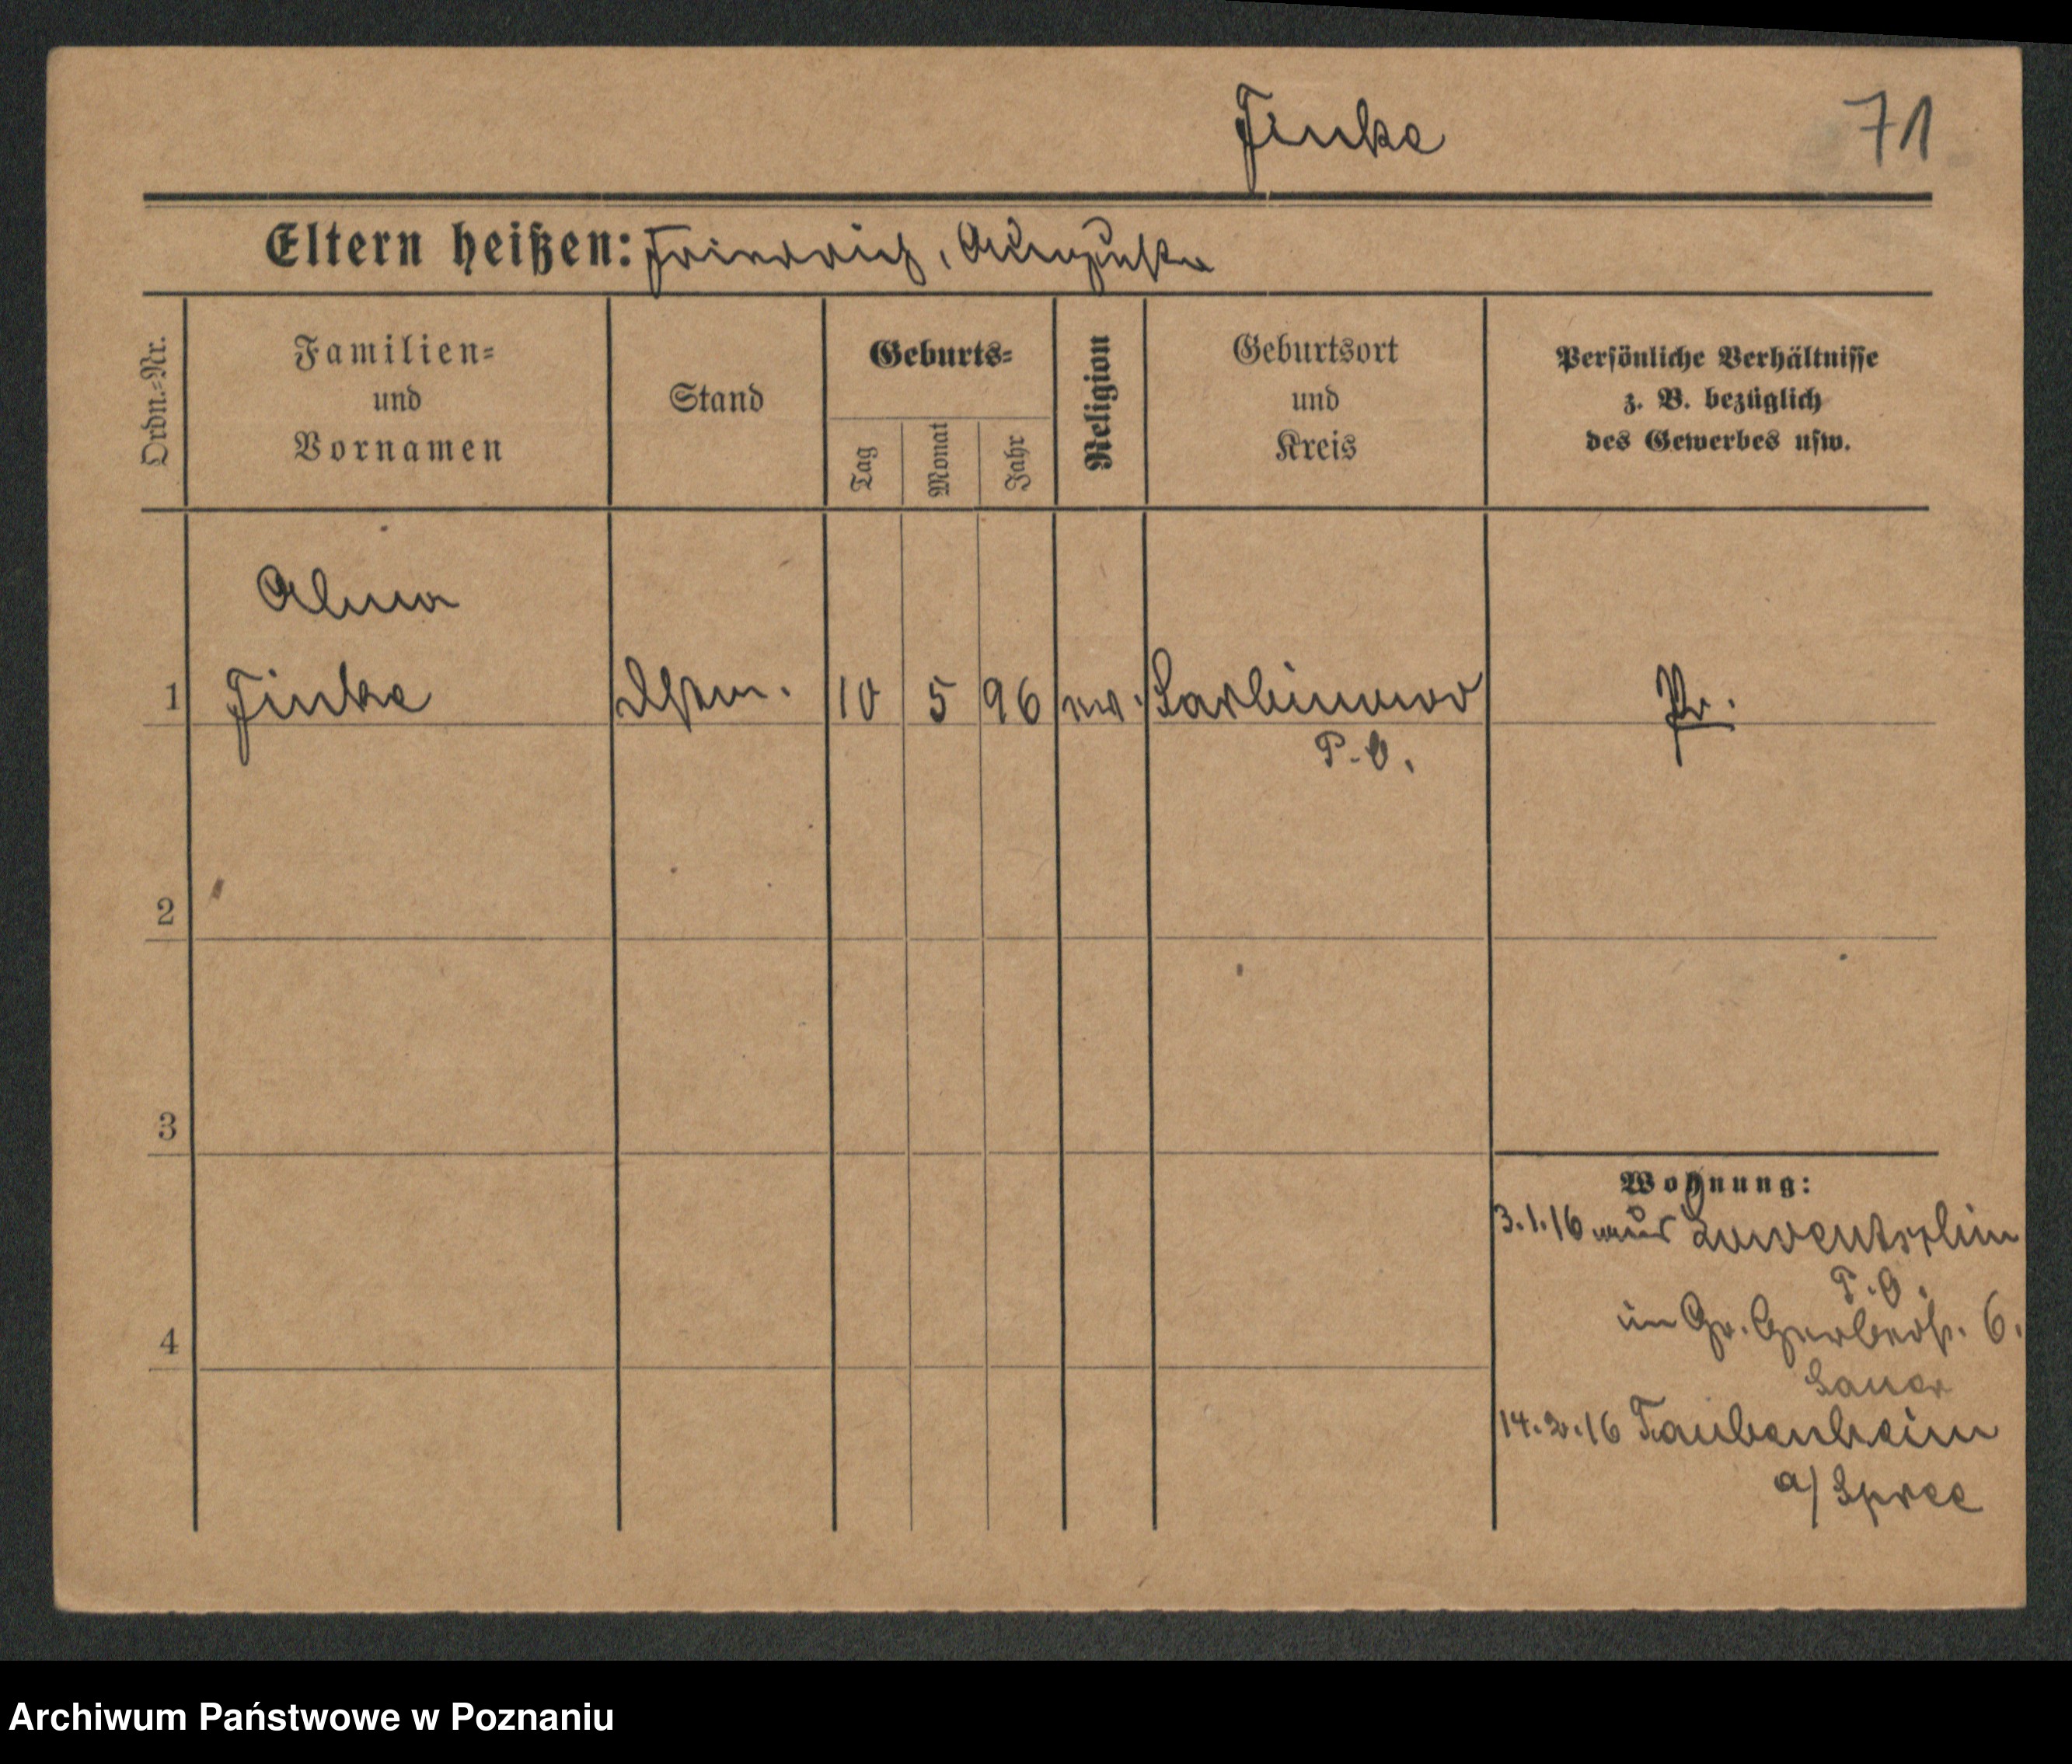 Finke 71
Eltern heißen: Friedrich, Auguste
Ordn.-Nr.
Familien-
und
Vornamen
Stand
Geburts-
Tag
Monat
Jahr
Religion
Geburtsort
und
Kreis
Persönliche Verhältnisse
z. B. bezüglich
des Gewerbes usw.
Alma
1 Finke 10 5 96 ev. Sarbinowo Pr.
P.O.
2
3
4
Wohnung:
3.1.16 aus
P.O.
in Gr. Gerberstr. 6.
Sauer
14.2.16 Taubenheim
a/ Spree
Archiwum Państwowe w Poznaniu